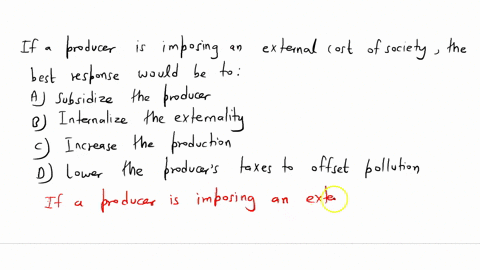 If a producer is imposing an external cost of society, the
best response would be to:
A) Subsidize the producer
B) Internalize the externality
C) Increase the production
D) Lower the producer's taxes to offset pollution
If a producer is imposing an exte